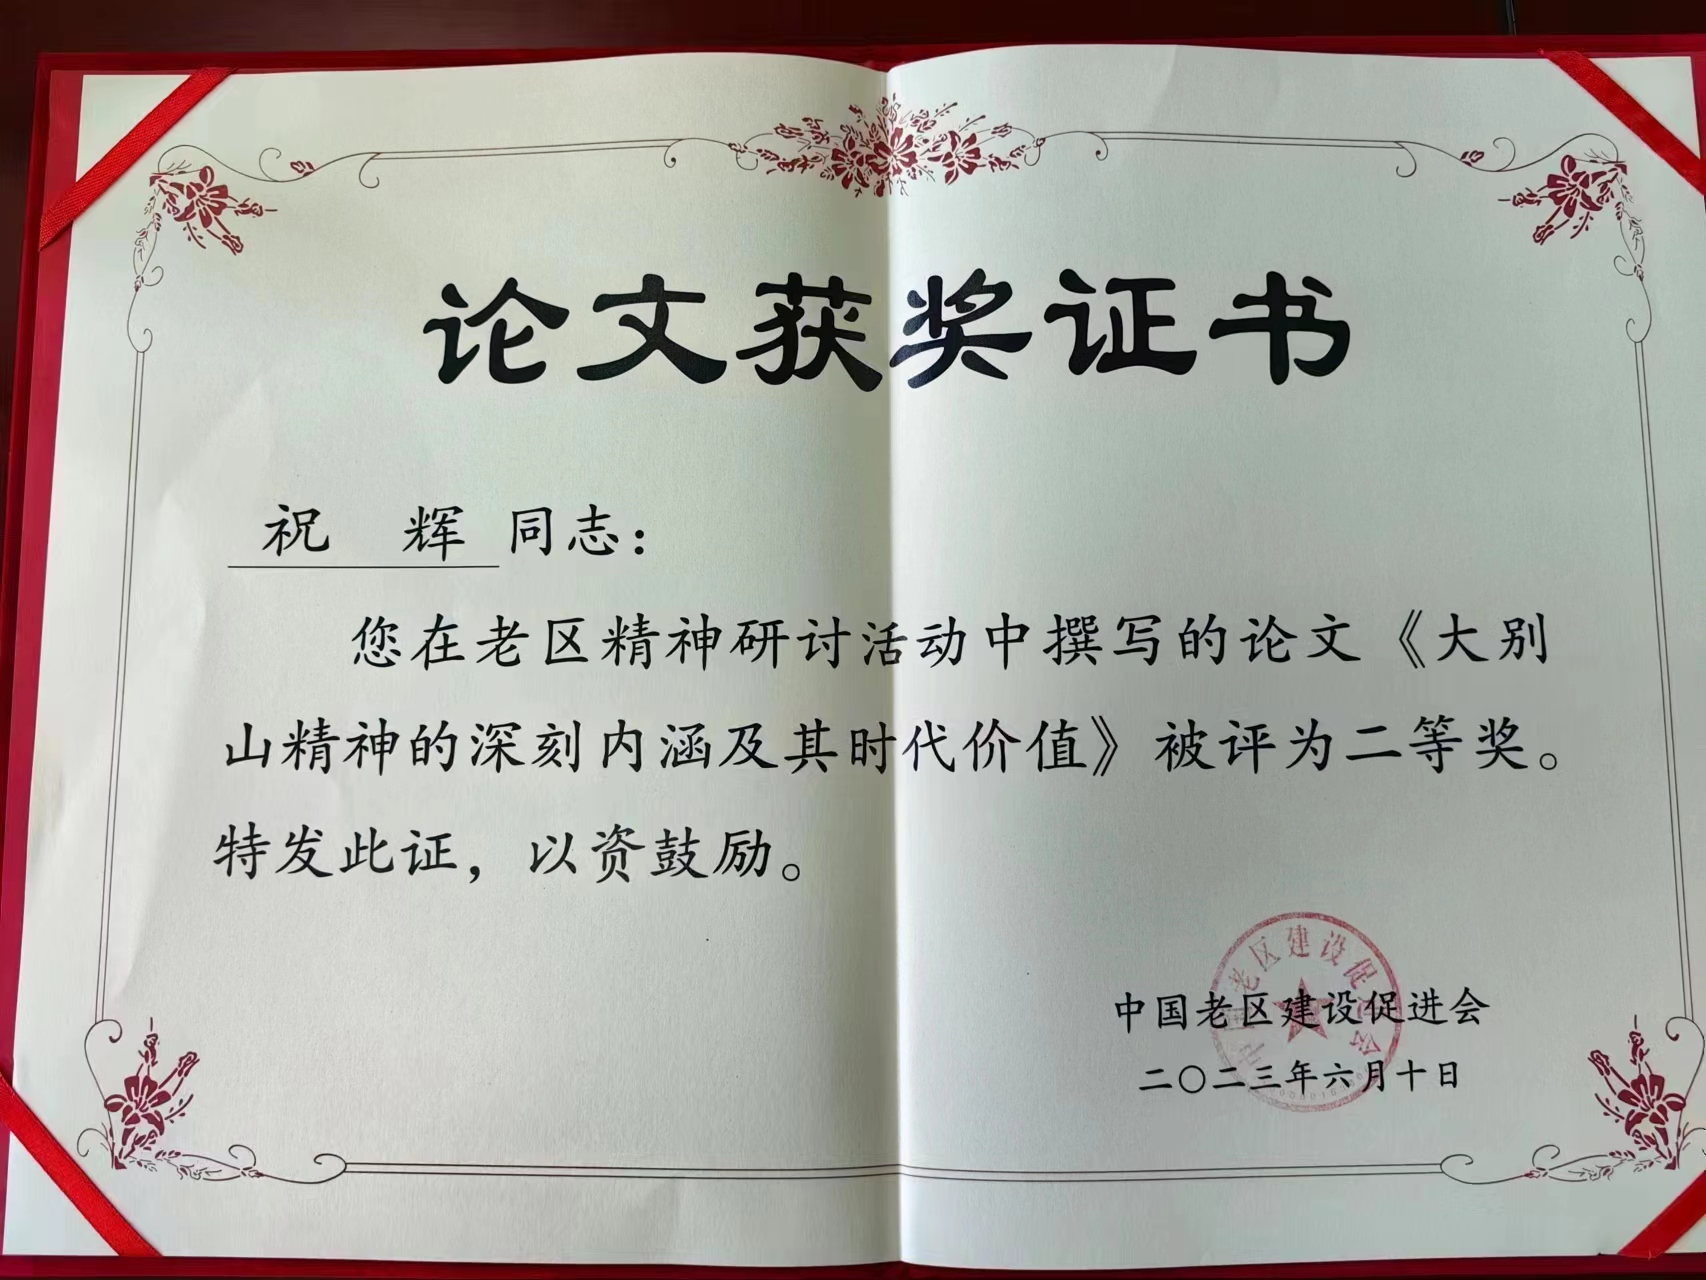 论文获奖证书
祝 辉 同志：
您在老区精神研讨活动中撰写的论文《大别
山精神的深刻内涵及其时代价值》被评为二等奖。
特发此证，以资鼓励。
中国老区建设促进会
二〇二三年六月十日